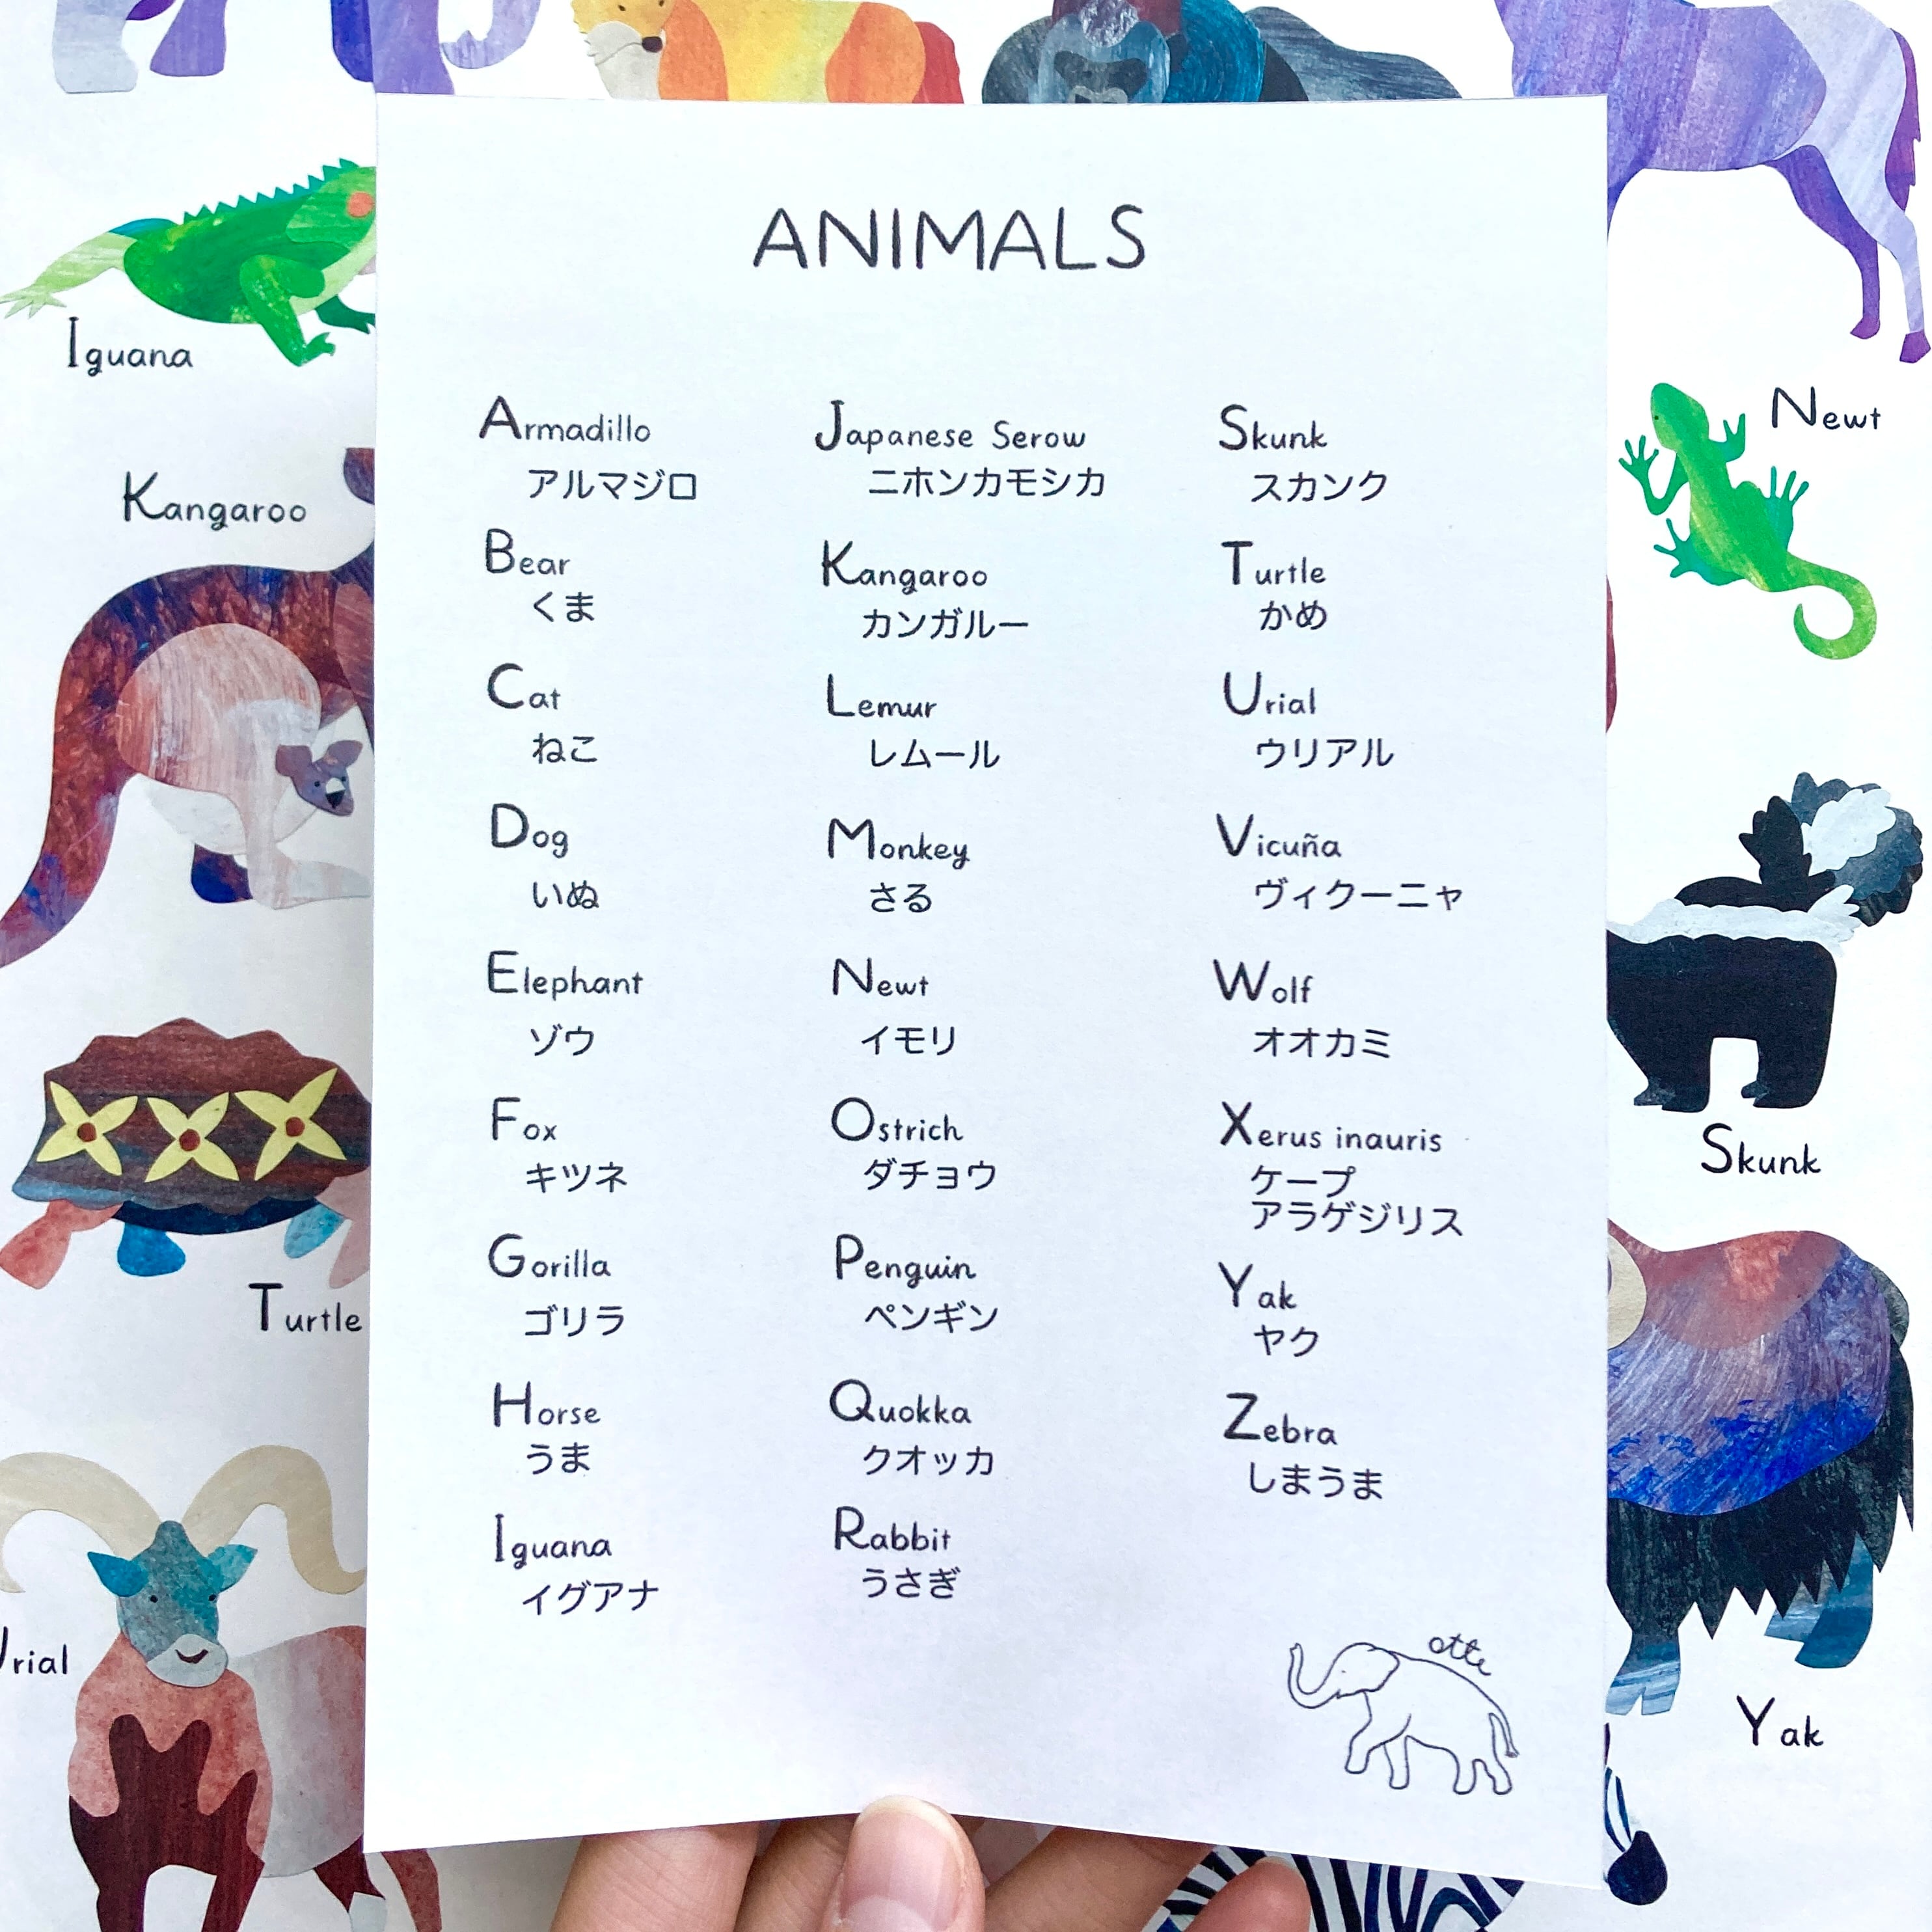 ANIMALS
Armadillo
アルマジロ
Bear
くま
Cat
ねこ
Dog
いぬ
Elephant
ゾウ
Fox
キツネ
Gorilla
ゴリラ
Horse
うま
Iguana
イグアナ
Japanese Serow
ニホンカモシカ
Kangaroo
カンガルー
Lemur
レムール
Monkey
さる
Newt
イモリ
Ostrich
ダチョウ
Penguin
ペンギン
Quokka
クオッカ
Rabbit
うさぎ
Skunk
スカンク
Turtle
かめ
Urial
ウリアル
Vicuña
ヴィクーニャ
Wolf
オオカミ
Xerus inauris
ケープ
アラゲジリス
Yak
ヤク
Zebra
しまうま
otte
Iguana
Kangaroo
Turtle
Urial
Newt
Skunk
Yak